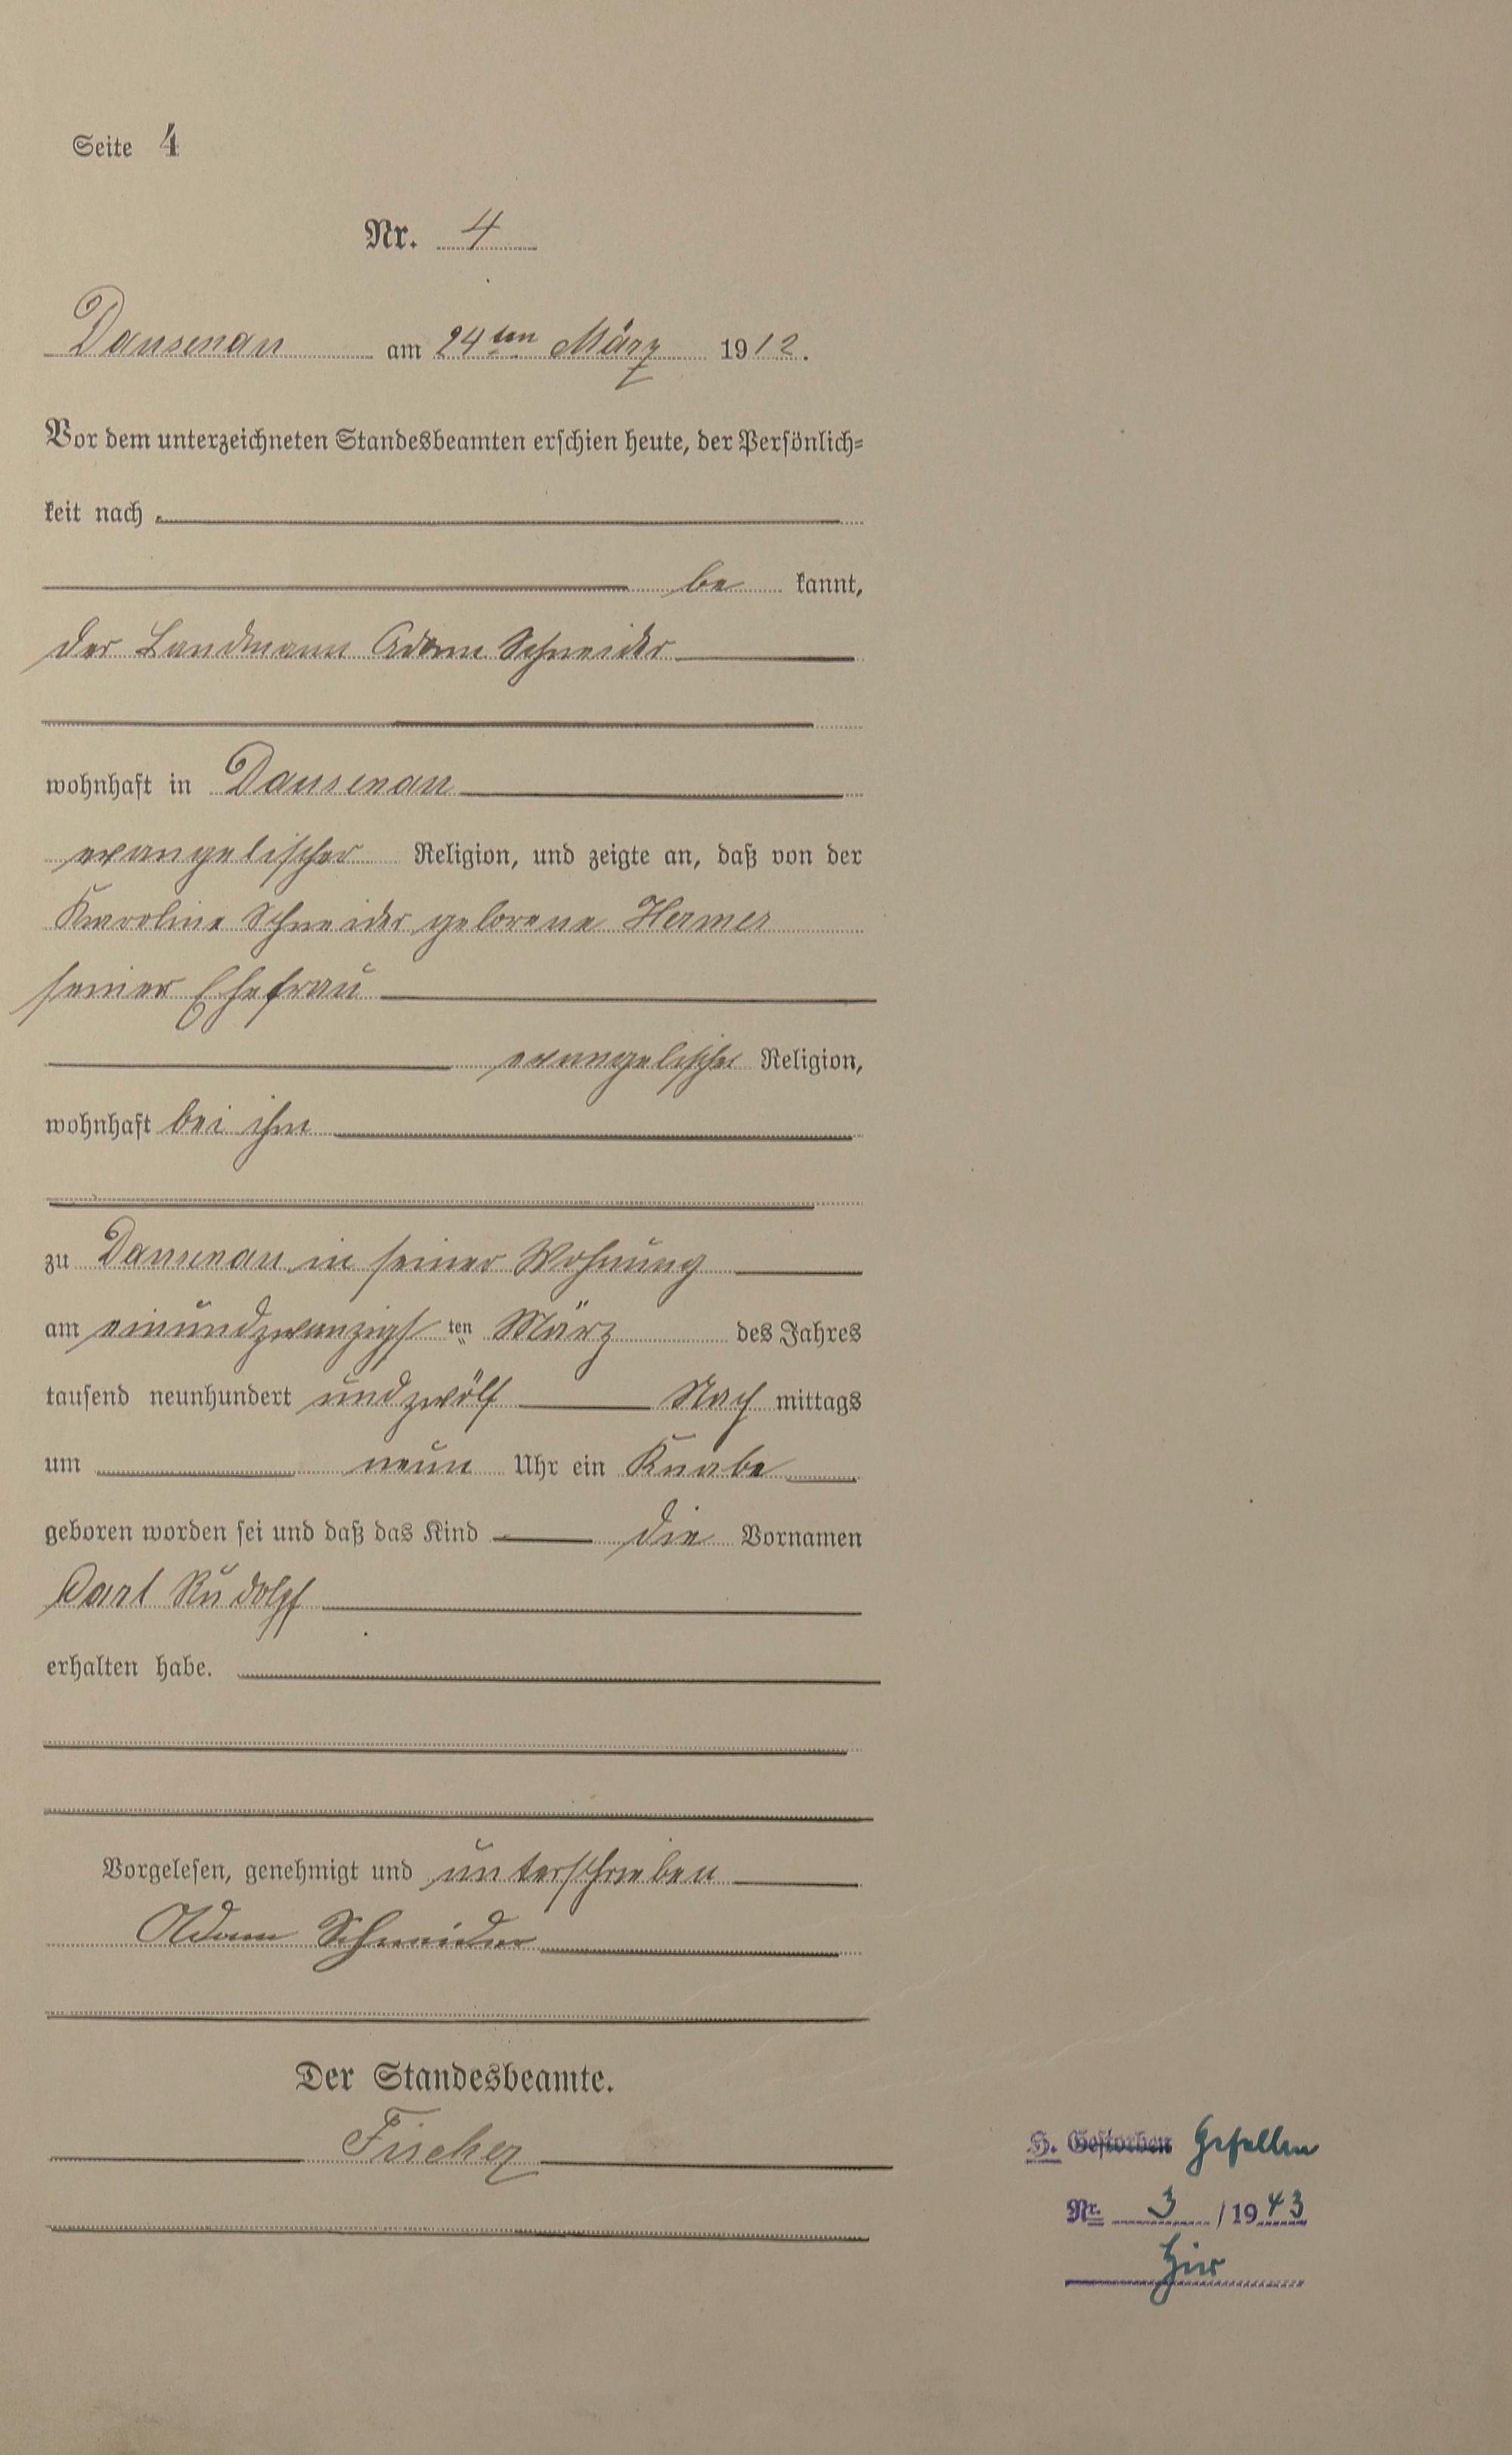 Seite 4
Nr. 4
Dausenau am 24ten März 1912.
Vor dem unterzeichneten Standesbeamten erschien heute, der Persönlich-
keit nach
be kannt,
der Landmann Adam Schneider
wohnhaft in Dausenau
evangelischer Religion, und zeigte an, daß von der
Karoline Schneider geborene Hermes
seiner Ehefrau
evangelischer Religion,
wohnhaft bei ihm
zu Dausenau in seiner Wohnung
am einundzwanzigs ten März des Jahres
tausend neunhundert und zwölf Nach mittags
um neun Uhr ein Knabe
geboren worden sei und daß das Kind die Vornamen
Carl Rudolf
erhalten habe.
Vorgelesen, genehmigt und unterschrieben
Adam Schneider
Der Standesbeamte.
Fischer
H. Gestorben Gefallen
Nr. 3 /1943
hier